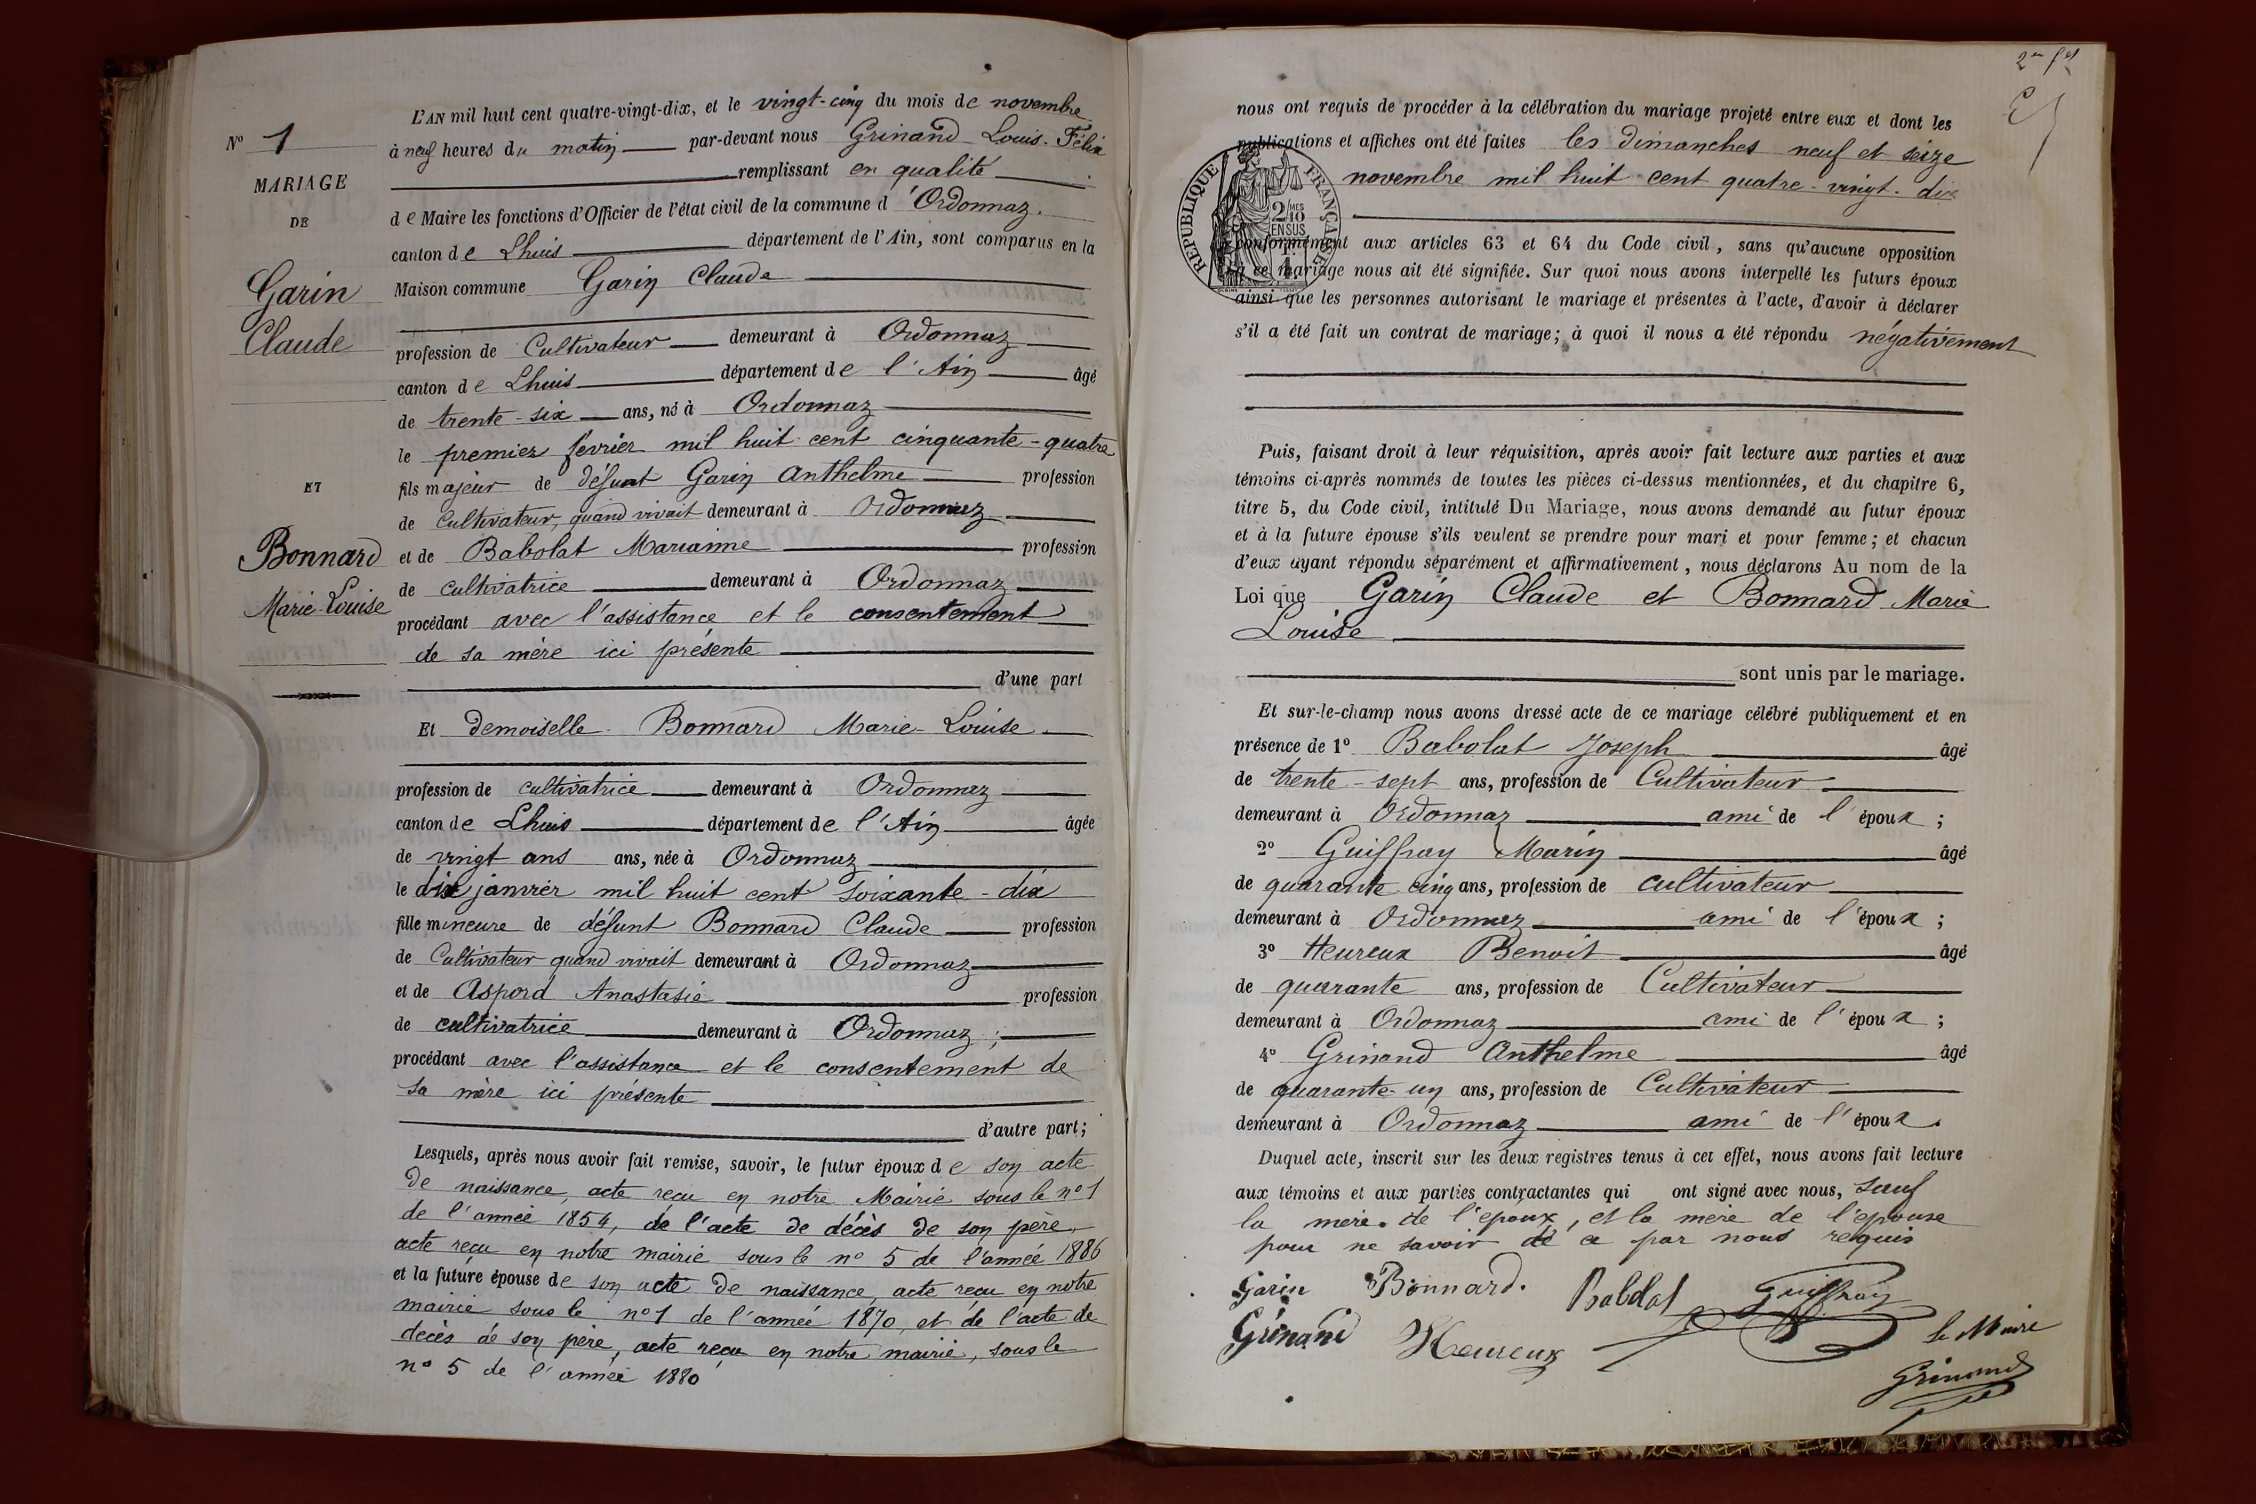 L'AN mil huit cent quatre-vingt-dix, et le vingt-cinq du mois de novembre
à neuf heures du matin par-devant nous Grinand Louis-Félix
remplissant en qualité
de Maire les fonctions d'Officier de l'état civil de la commune d'Ordonnaz.
canton de Lhuis département de l'Ain, sont comparus en la
Maison commune Garin Claude
profession de Cultivateur demeurant à Ordonnaz
canton de Lhuis département de l'Ain âgé
de trente-six ans, né à Ordonnaz
le premier février mil huit cent cinquante-quatre
fils majeur de défunt Garin Anthelme profession
de Cultivateur, quand vivait demeurant à Ordonnaz
et de Babolat Marianne profession
de cultivatrice demeurant à Ordonnaz
procédant avec l'assistance et le consentement
de sa mère ici présente
d'une part
Et demoiselle Bonnard Marie-Louise
profession de cultivatrice demeurant à Ordonnaz
canton de Lhuis département de l'Ain âgée
de vingt ans ans, née à Ordonnaz
le dix janvier mil huit cent soixante-dix
fille mineure de défunt Bonnard Claude profession
de Cultivateur quand vivait demeurant à Ordonnaz
et de Aspord Anastasie profession
de cultivatrice demeurant à Ordonnaz ;
procédant avec l'assistance et le consentement de
sa mère ici présente
d'autre part;
Lesquels, après nous avoir fait remise, savoir, le futur époux de son acte
de naissance, acte reçu en notre Mairie sous le nº 1
de l'année 1854, de l'acte de décès de son père,
acte reçu en notre mairie sous le nº 5 de l'année 1886
et la future épouse de son acte de naissance, acte reçu en notre
mairie sous le nº 1 de l'année 1870, et de l'acte de
décès de son père, acte reçu en notre mairie, sous le
nº 5 de l'année 1880
Nº 1
MARIAGE
DE
Garin
Claude
ET
Bonnard
Marie-Louise
nous ont requis de procéder à la célébration du mariage projeté entre eux et dont les
publications et affiches ont été faites les dimanches neuf et seize
novembre mil huit cent quatre-vingt-dix
conformément aux articles 63 et 64 du Code civil, sans qu'aucune opposition
à ce mariage nous ait été signifiée. Sur quoi nous avons interpellé les futurs époux
ainsi que les personnes autorisant le mariage et présentes à l'acte, d'avoir à déclarer
s'il a été fait un contrat de mariage; à quoi il nous a été répondu négativement
RÉPUBLIQUE FRANÇAISE
2/10MES
EN SUS
Puis, faisant droit à leur réquisition, après avoir fait lecture aux parties et aux
témoins ci-après nommés de toutes les pièces ci-dessus mentionnées, et du chapitre 6,
titre 5, du Code civil, intitulé Du Mariage, nous avons demandé au futur époux
et à la future épouse s'ils veulent se prendre pour mari et pour femme; et chacun
d'eux ayant répondu séparément et affirmativement, nous déclarons Au nom de la
Loi que Garin Claude et Bonnard Marie
Louise
sont unis par le mariage.
Et sur-le-champ nous avons dressé acte de ce mariage célébré publiquement et en
présence de 1º Babolat Joseph âgé
de trente-sept ans, profession de Cultivateur
demeurant à Ordonnaz ami de l'époux ;
2º Guiffray Marin âgé
de quarante cinq ans, profession de cultivateur
demeurant à Ordonnaz ami de l'époux ;
3º Heureux Benoit âgé
de quarante ans, profession de Cultivateur
demeurant à Ordonnaz ami de l'époux ;
4º Grinand Anthelme âgé
de quarante-un ans, profession de Cultivateur
demeurant à Ordonnaz ami de l'époux.
Duquel acte, inscrit sur les deux registres tenus à cet effet, nous avons fait lecture
aux témoins et aux parties contractantes qui ont signé avec nous, sauf
la mère de l'époux, et la mère de l'épouse
pour ne savoir de ce par nous requis
Garin Bonnard. Babolat Guiffray
Grinand Heureux
le Maire
Grinand